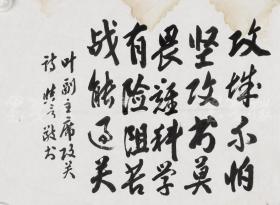 攻城不怕
坚攻书莫
畏难科学
有险阻苦
战能过关
叶副主席攻关
诗 敬书